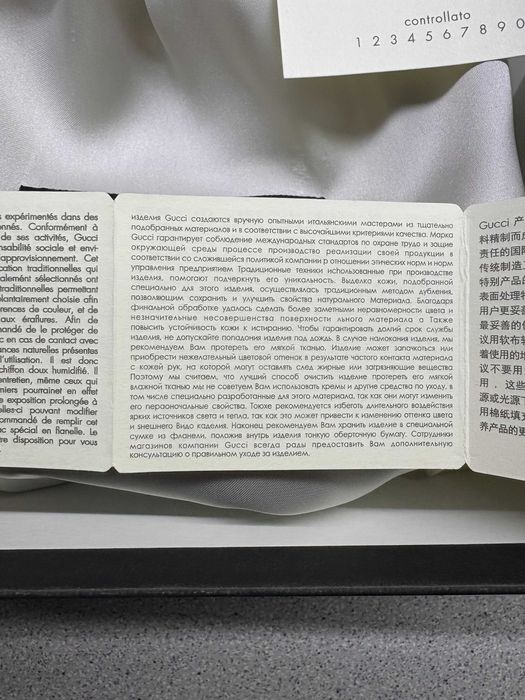 controllato
1 2 3 4 5 6 7 8 9 0
s expérimentés dans des
onnés. Conformément à
de ses activités, Gucci
nsabilité sociale et envi-
approvisionnement. Cet
ation traditionnelles qui
alement sélectionnés ont
traditionnelles permettant
olontairement choisie afin
érences de couleur, et de
aux éraflures. Afin de
mandé de le protéger de
en cas de contact avec
nces naturelles présentes
l'utilisation. Il est donc
chiffon doux humidifié. Il
entretien, même ceux qui
miers pourrainet en effet
e exposition prolongée à
elles-ci pouvant modifier
ommandé de remplir cet
c spécial en flanelle. Le
re disposition pour vous
изделия Gucci создаются вручную опытными итальянскими мастерами из тщательно
подобранных материалов и в соответствии с высочайшими критериями качества. Марка
Gucci гарантирует соблюдение международных стандартов по охране трудо и защие
окружающей среды процессе производство реализации своей продукции в
соответствии со сложившейся политикой компании р отношении этических норм и норм
управления предприятием Традиционные техники использованные при производстве
изделия, помогают подчеркнуть его уникальность. Выделко кожи, подобранной
специально для этого изделия, осуществлялась традиционным методом дубления,
позволяющим сохранить и улучшить свойства натурального Материала. Благодаря
финальной обработке удалось сделать более заметными неравномерности цвета и
незначительные несовершенства поверхности льного материала о Также
повысить устойчивость кожи к истиранию. Чтобы гарантировать долгий срок службы
изделия, не допускайте попадания изделия под дождь. В случае намокания изделия, мы
рекомендуем Вам протереть его мягкой тканью. Изделие может започкоться или
приобрести нежелательный цветовой оттенок в результате частого контакта материала
с кожей рук, на которой могут оставать след жирные или загрязняющие вещества
Поэтому мы считаем, что лучший способ очистить изделие протереть его мягкой
влажной тканью мы не советуем Вам использовать кремы и другие средства по уходу, в
том числе специально разработанные для этого материала, так как они могут изменить
его первоначальные свойства. Токхе рекомендуется избеготь длительного воздействия
ярких источников света и тепла, так как это может привести к изменению оттенка цвета
и внешнего Видо каделия. Наконец рекомендуем Вам хранить изделие в специальной
сумке из фланели, положив внутрь изделия тонкую оберточную бумагу. Сотрудники
магазинов компании Gucci всегда рады предоставить Вам дополнительную
консультацию о правильном уходе за изделием.
Gucci 产
料精制而成
责任的国际
传统制造工
特别产品的
表面处理特
用户更妥善
最妥善的
议用软布轻
着使用的增
议不要用
用．这些
源或光源下
用棉纸填充
养产品的更